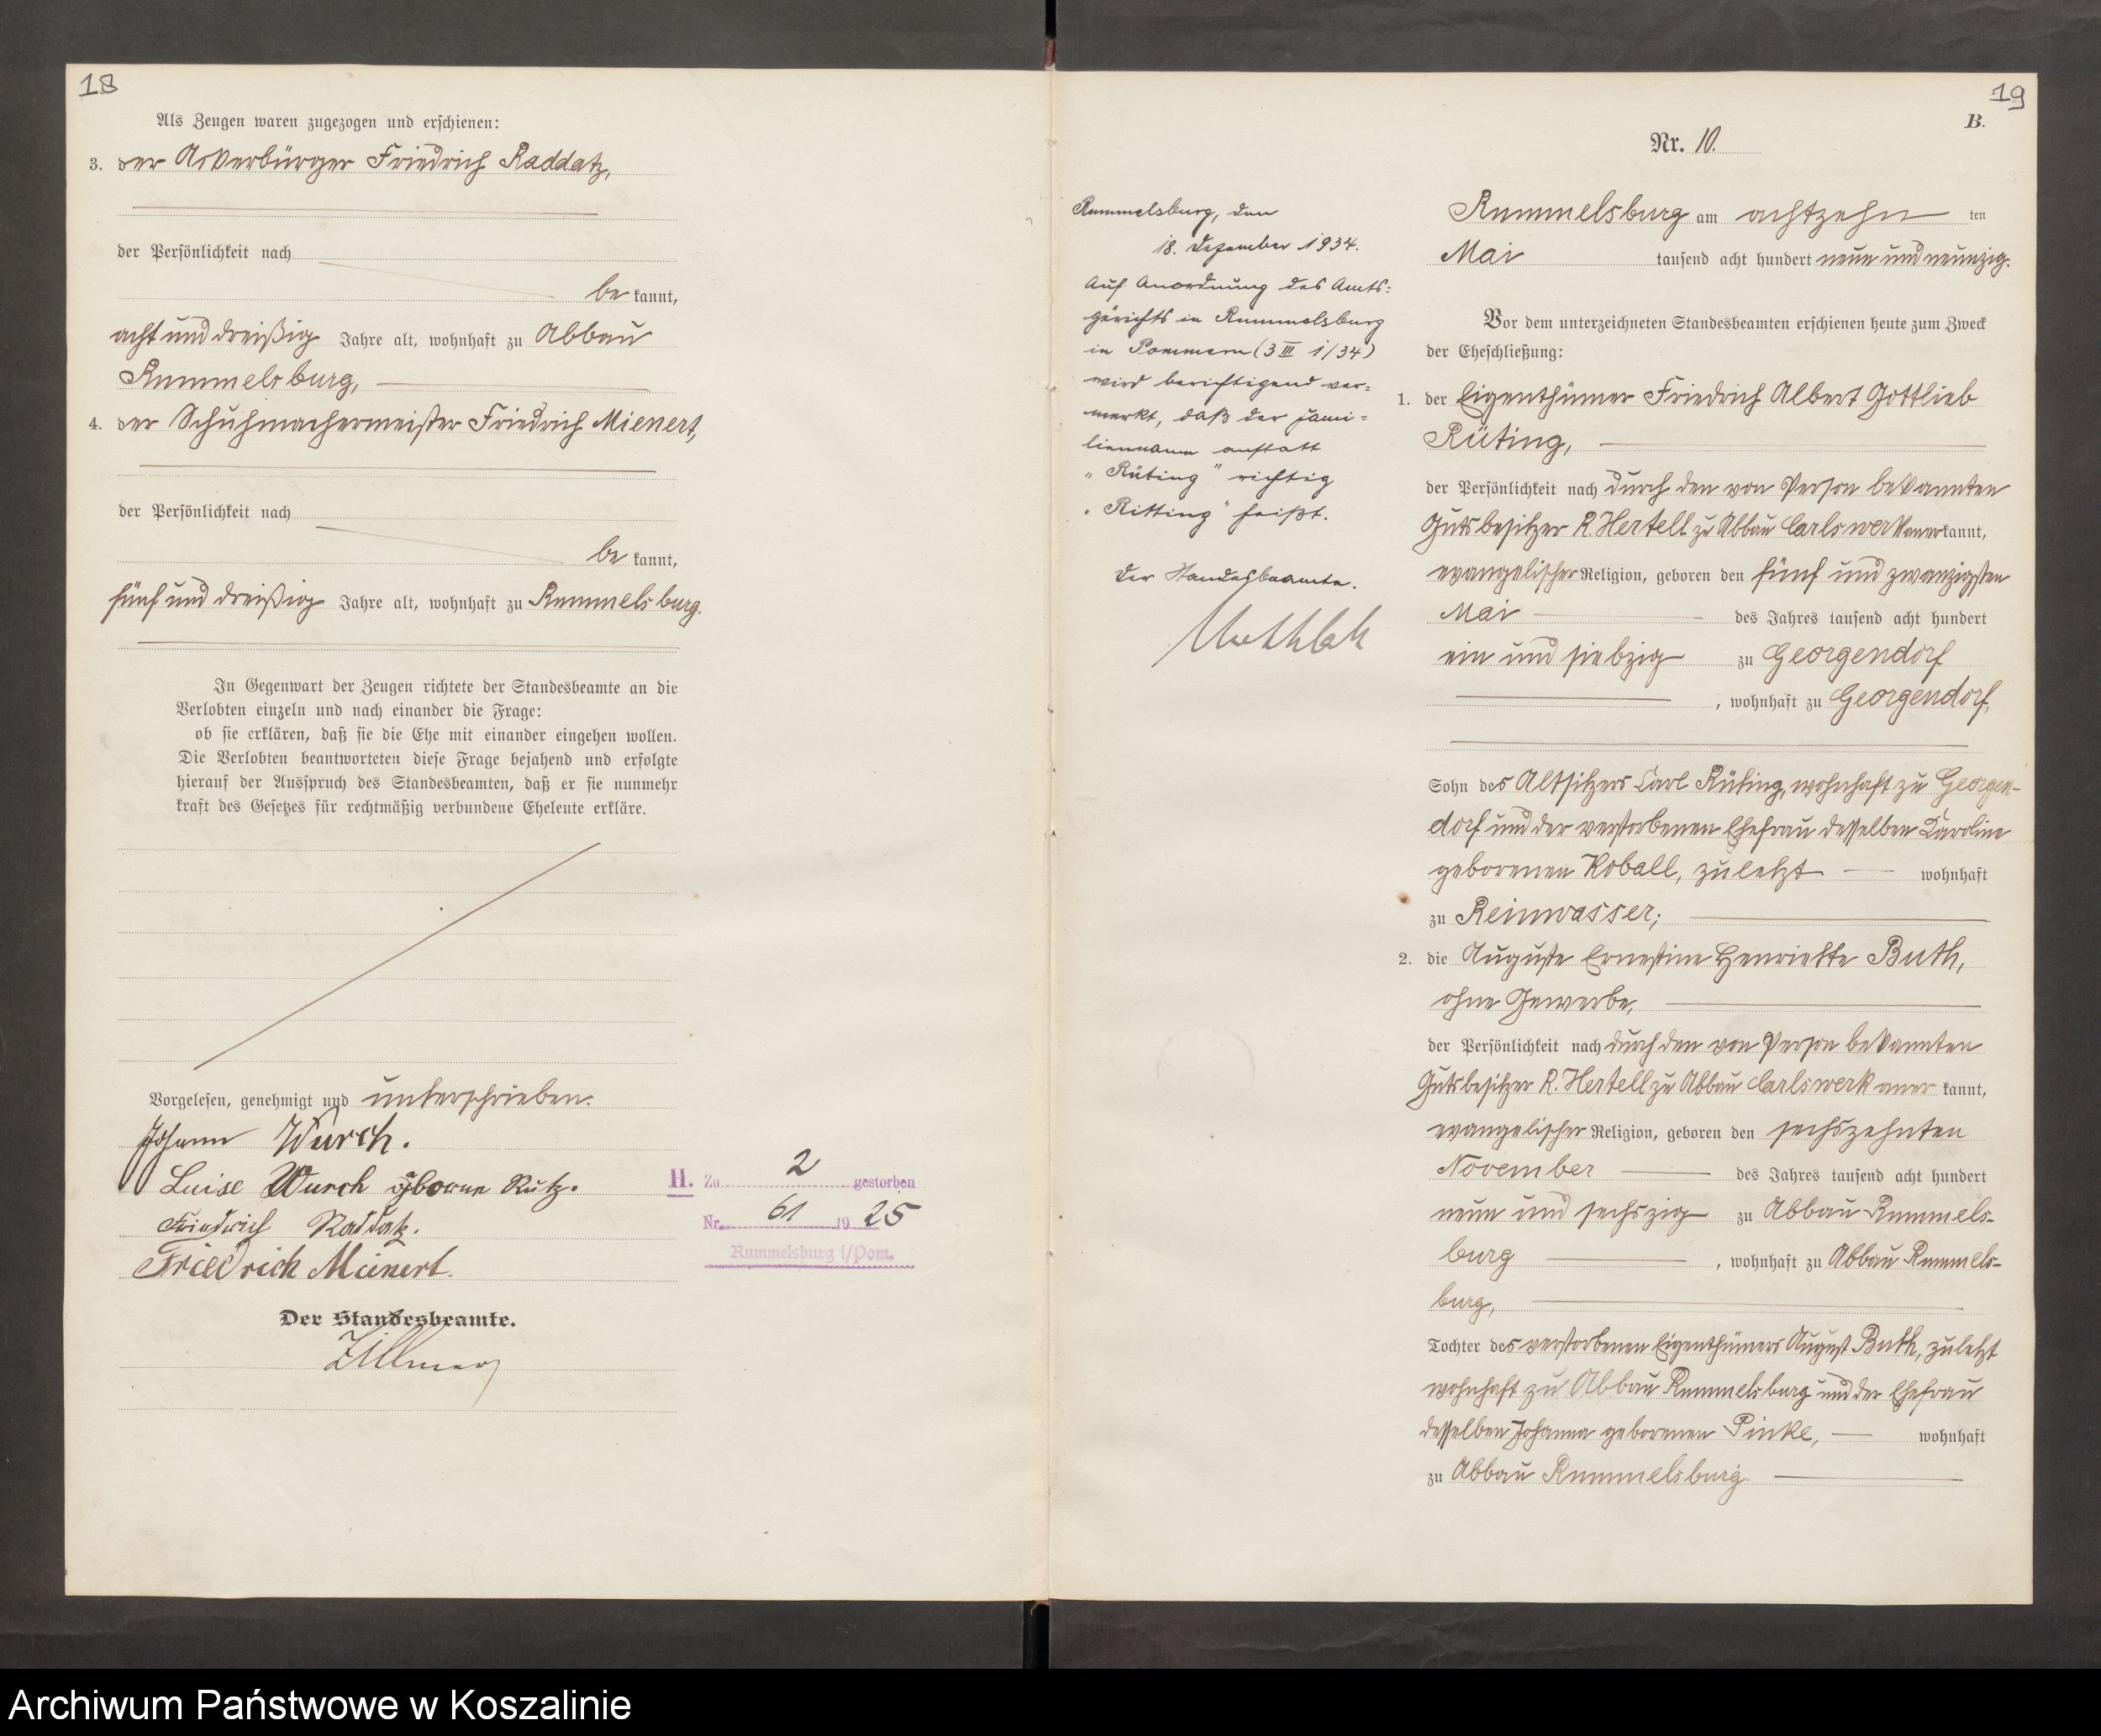 18
Als Zeugen waren zugezogen und erschienen:
3. der Ackerbürger Friedrich Raddatz,
der Persönlichkeit nach
be kannt,
acht und dreißig Jahre alt, wohnhaft zu Abbau
Rummelsburg,
4. der Schuhmachermeister Friedrich Mienert,
der Persönlichkeit nach
be kannt,
fünf und dreißig Jahre alt, wohnhaft zu Rummelsburg.
In Gegenwart der Zeugen richtete der Standesbeamte an die
Verlobten einzeln und nach einander die Frage:
ob sie erklären, daß sie die Ehe mit einander eingehen wollen.
Die Verlobten beantworteten diese Frage bejahend und erfolgte
hierauf der Ausspruch des Standesbeamten, daß er sie nunmehr
kraft des Gesetzes für rechtmäßig verbundene Eheleute erkläre.
Vorgelesen, genehmigt und unterschrieben.
Johann Wurch.
Luise Wurch geborne Rutz.
Friedrich Raddatz.
Friedrich Meinert.
Der Standesbeamte.
Zillmer
H. Zu 2 gestorben
Nr. 61 1925
Rummelsburg i/Pom.
19
B.
Nr. 10.
Rummelsburg, den
18. Dezember 1934.
Auf Anordnung des Amts=
gerichts in Rummelsburg
in Pommern (3 III 1/34)
wird berichtigend ver=
merkt, daß der Fami=
lienname anstatt
"Rüting" richtig
"Ritting" heißt.
Der Standesbeamte.
Rummelsburg am achtzehn ten
Mai tausend acht hundert neun und neunzig.
Vor dem unterzeichneten Standesbeamten erschienen heute zum Zweck
der Eheschließung:
1. der Eigenthümer Friedrich Albert Gottlieb
Rüting,
der Persönlichkeit nach durch den von Person bekannten
Gutsbesitzer R. Hertell zu Abbau Carlswerk aner kannt,
evangelischer Religion, geboren den fünf und zwanzigsten
Mai des Jahres tausend acht hundert
ein und siebzig zu Georgendorf
, wohnhaft zu Georgendorf,
Sohn des Altsitzers Carl Rüting, wohnhaft zu Georgen-
dorf und der verstorbenen Ehefrau desselben Karoline
geborenen Koball, zuletzt wohnhaft
zu Reinwasser;
2. die Auguste Ernestine Henriette Buth,
ohne Gewerbe,
der Persönlichkeit nach durch den von Person bekannten
Gutsbesitzer R. Hertell zu Abbau Carlswerk aner kannt,
evangelischer Religion, geboren den sechszehnten
November des Jahres tausend acht hundert
neun und sechszig zu Abbau Rummels-
burg , wohnhaft zu Abbau Rummels-
burg,
Tochter des verstorbenen Eigenthümers August Buth, zuletzt
wohnhaft zu Abbau Rummelsburg und der Ehefrau
desselben Johanna geborenen Pinke, wohnhaft
zu Abbau Rummelsburg.
Archiwum Państwowe w Koszalinie